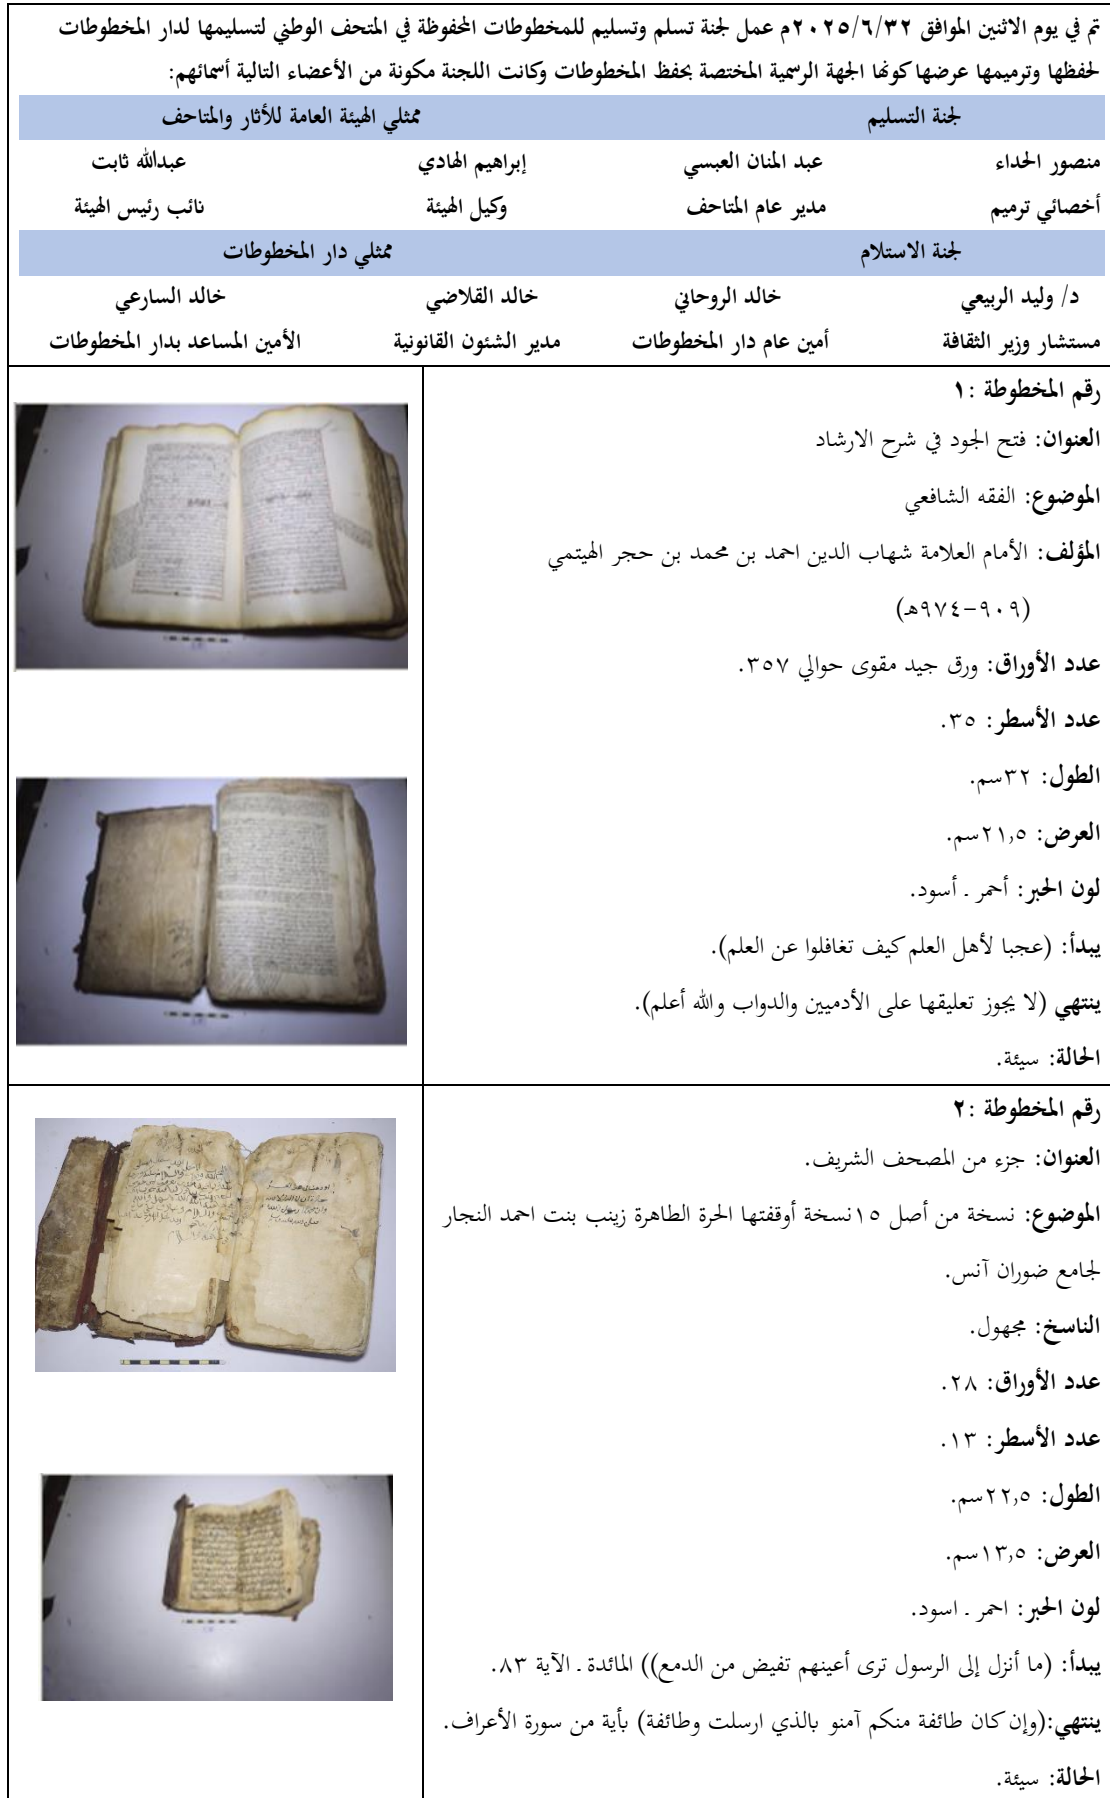 تم في يوم الاثنين الموافق ٢٠٢٥/٦/٣٢م عمل لجنة تسلم وتسليم للمخطوطات المحفوظة في المتحف الوطني لتسليمها لدار المخطوطات
لحفظها وترميمها عرضها كونها الجهة الرسمية المختصة بحفظ المخطوطات وكانت اللجنة مكونة من الأعضاء التالية أسمائهم:
لجنة التسليم ممثلي الهيئة العامة للأثار والمتاحف
منصور الحداء عبد المنان العبسي إبراهيم الهادي عبدالله ثابت
أخصائي ترميم مدير عام المتاحف وكيل الهيئة نائب رئيس الهيئة
لجنة الاستلام ممثلي دار المخطوطات
د/ وليد الربيعي خالد الروحاني خالد القلاضي خالد السارعي
مستشار وزير الثقافة أمين عام دار المخطوطات مدير الشئون القانونية الأمين المساعد بدار المخطوطات
رقم المخطوطة :١
العنوان: فتح الجود في شرح الارشاد
الموضوع: الفقه الشافعي
المؤلف: الأمام العلامة شهاب الدين احمد بن محمد بن حجر الهيتمي
(٩٠٩-٩٧٤هـ)
عدد الأوراق: ورق جيد مقوى حوالي ٣٥٧.
عدد الأسطر: ٣٥.
الطول: ٣٢سم.
العرض: ٢١,٥سم.
لون الحبر: أحمر ـ أسود.
يبدأ: (عجبا لأهل العلم كيف تغافلوا عن العلم).
ينتهي (لا يجوز تعليقها على الأدميين والدواب والله أعلم).
الحالة: سيئة.
رقم المخطوطة :٢
العنوان: جزء من المصحف الشريف.
الموضوع: نسخة من أصل ١٥نسخة أوقفتها الحرة الطاهرة زينب بنت احمد النجار
لجامع ضوران آنس.
الناسخ: مجهول.
عدد الأوراق: ٢٨.
عدد الأسطر: ١٣.
الطول: ٢٢,٥سم.
العرض: ١٣,٥سم.
لون الحبر: احمر ـ اسود.
يبدأ: (ما أنزل إلى الرسول ترى أعينهم تفيض من الدمع)) المائدة ـ الآية ٨٣.
ينتهي:(وإن كان طائفة منكم آمنو بالذي ارسلت وطائفة) بأية من سورة الأعراف.
الحالة: سيئة.